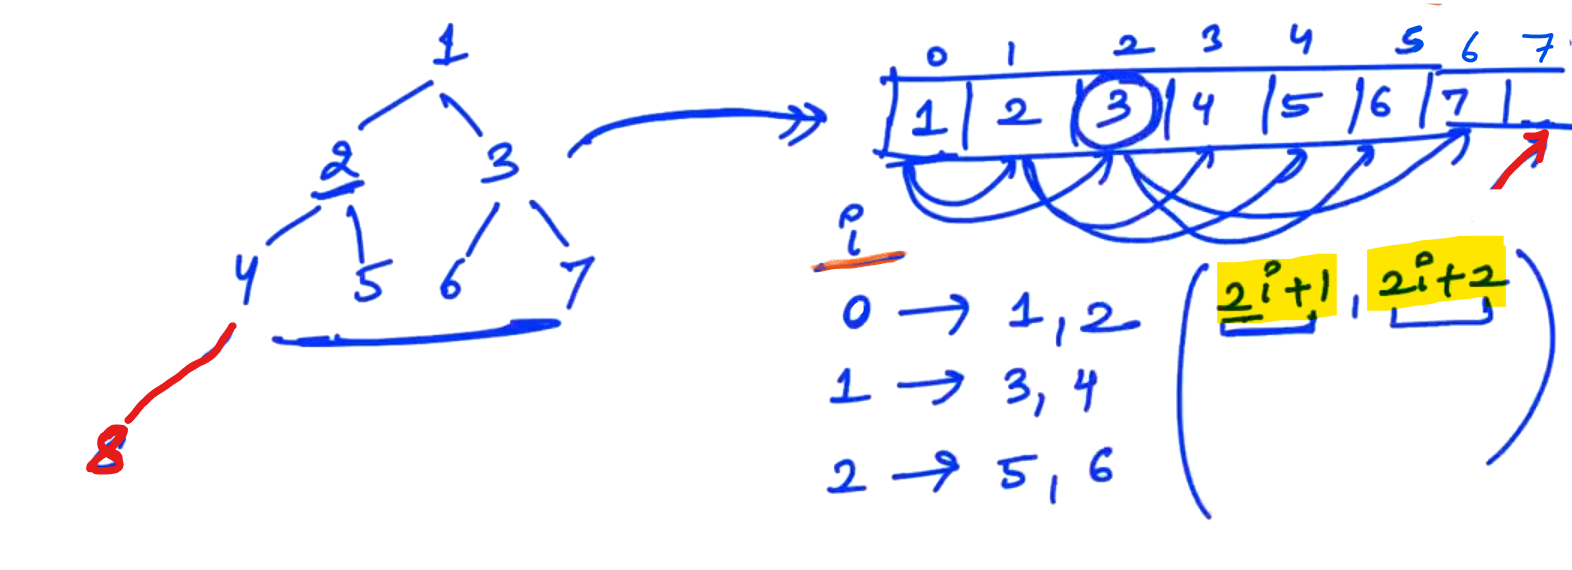 1
2 3
4 5 6 7
8
0 1 2 3 4 5 6 7
1 2 3 4 5 6 7
i
0 → 1, 2
1 → 3, 4
2 → 5, 6
(2i+1, 2i+2)